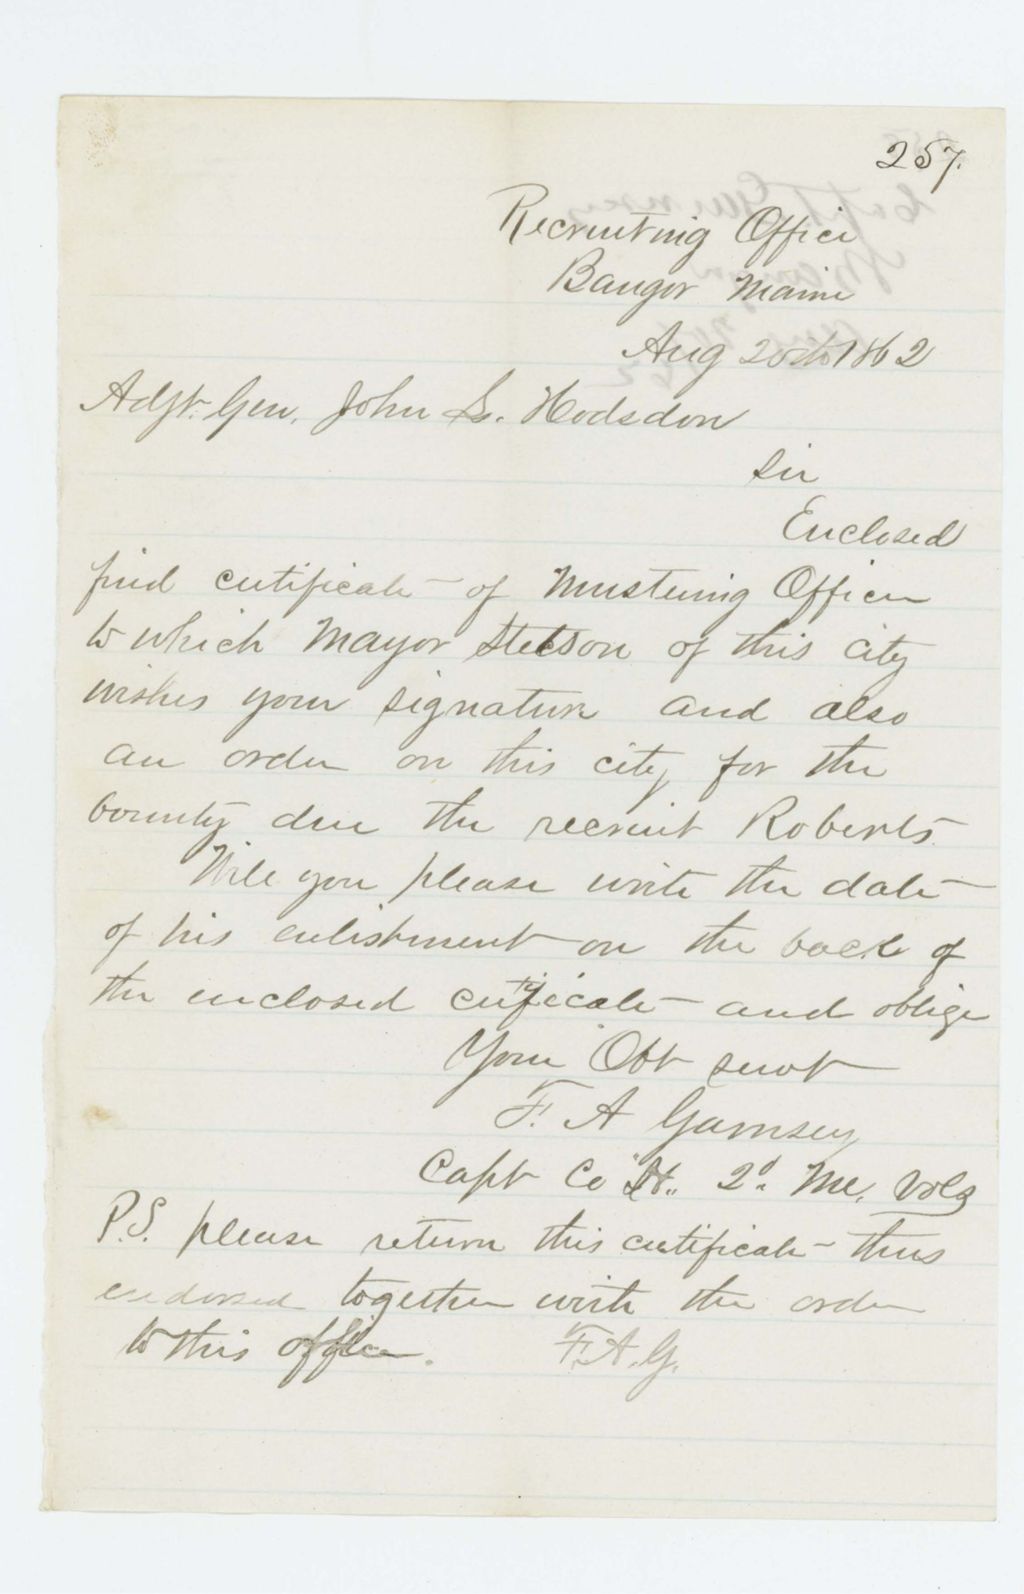 257.
Recruiting Office
Bangor Maine
Aug 20th 1862
Adjt. Gen. John L. Hodsdon
Sir
Enclosed
find certificate of Mustering Officer
to which Mayor Stetson of this city
wishes your signature and also
an order on this city for the
bounty due the recruit Roberts
Will you please write the date
of his enlistment on the back of
the enclosed certificate and oblige
Your Obt servt
F. A Garnsey
Capt Co "H" 2d. Me. Vols
P.S. please return this certificate thus
endorsed together with the order
to this office. F.A.G.